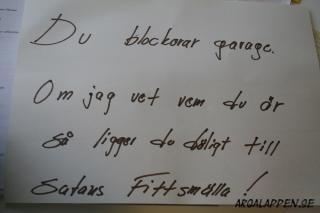 Du blockerar garage.
Om jag vet vem du är
så ligger du dåligt till
Satans Fittsmälla!
ARGALAPPEN.SE